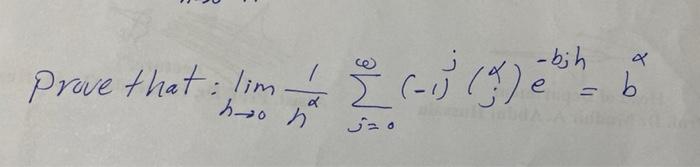 Prove that : lim_{h→0} \frac{1}{h^α} \sum_{j=0}^{∞} (-1)^j \binom{α}{j} e^{-bjh} = b^α